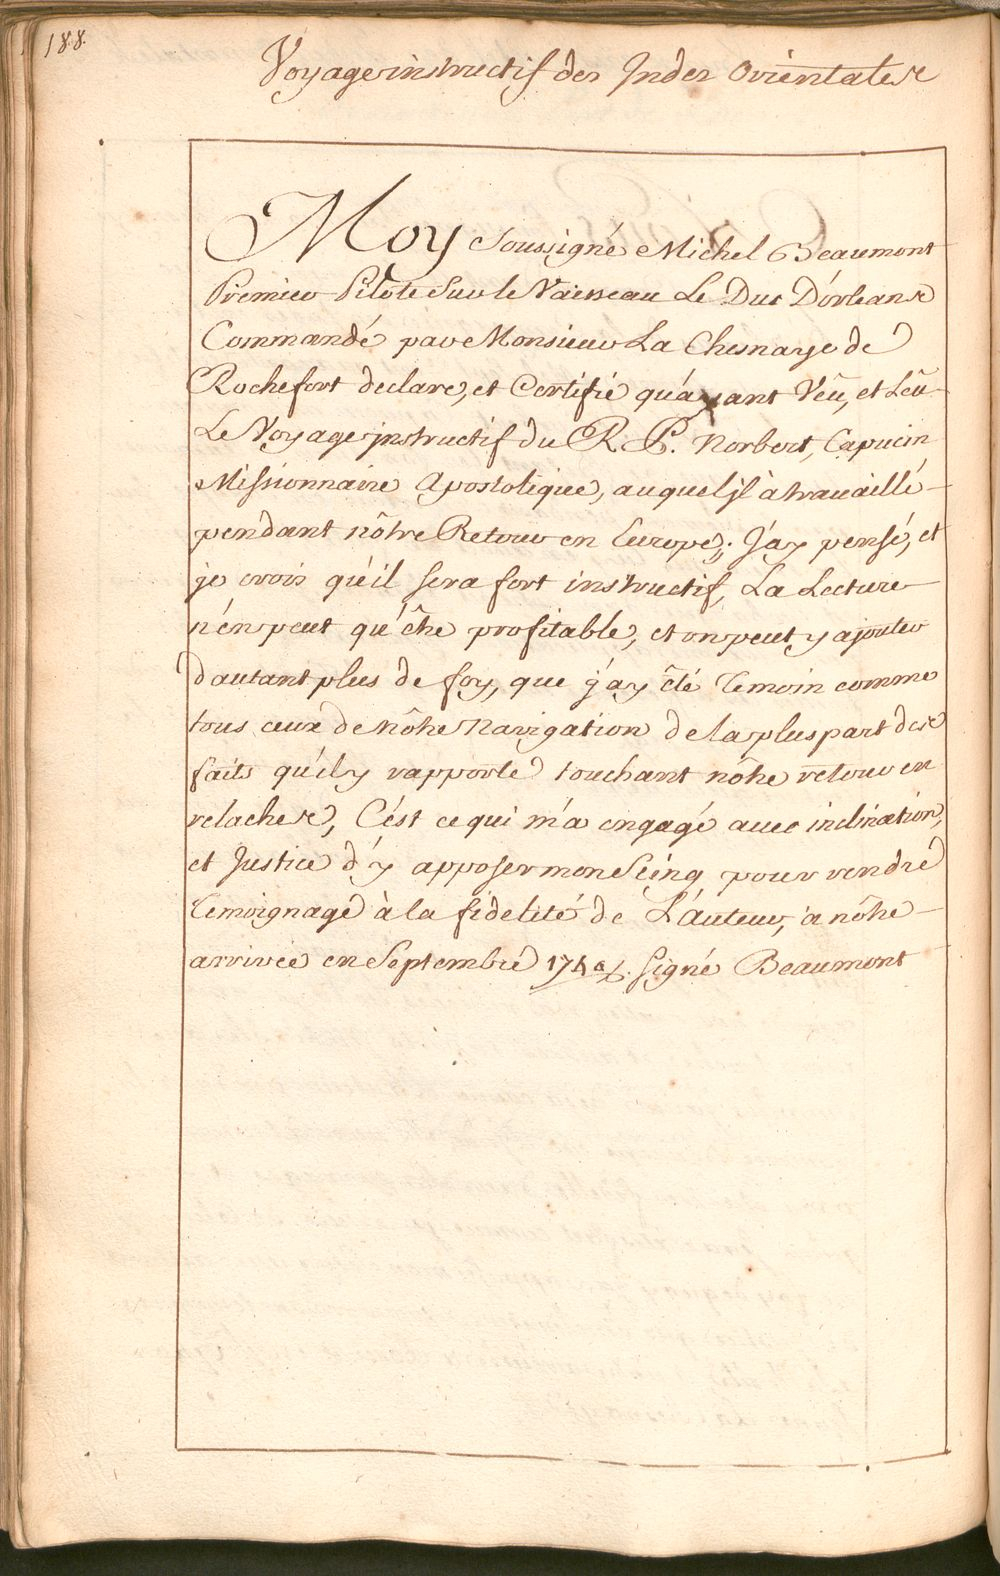 188.
Voyage instructif des Indes Orientales
Moy Soussigné Michel Beaumont
Premier Pilôte Sur le Vaisseau Le Duc D'orleans
Commandé par Monsieur La Chesnaye de
Rochefort declare, et Certifie qu'ayant Vêu, et Lêu
Le Voyage jnstructif du R. P. Norbert, Capucin
Missionnaire Apostolique, auquel jl à travaillé
pendant nôtre Retour en Europe; J'ay pensé, et
je crois qu'il sera fort instructif, La Lecture
n'en peut qu'être profitable, et on peut y ajouter
d'autant plus de foy, que j'ay êté Temoin comme
tous ceux de nôtre Navigation de la pluspart des
faits qu'il y rapporte touchant nôtre retour en
relaches, C'ést ce qui m'a engagé avec inclination,
et Justice d'y apposer mon Séing pour rendre
Temoignage à la fidelité de L'auteur, a nôtre
arrivée en Septembre signé Beaumont